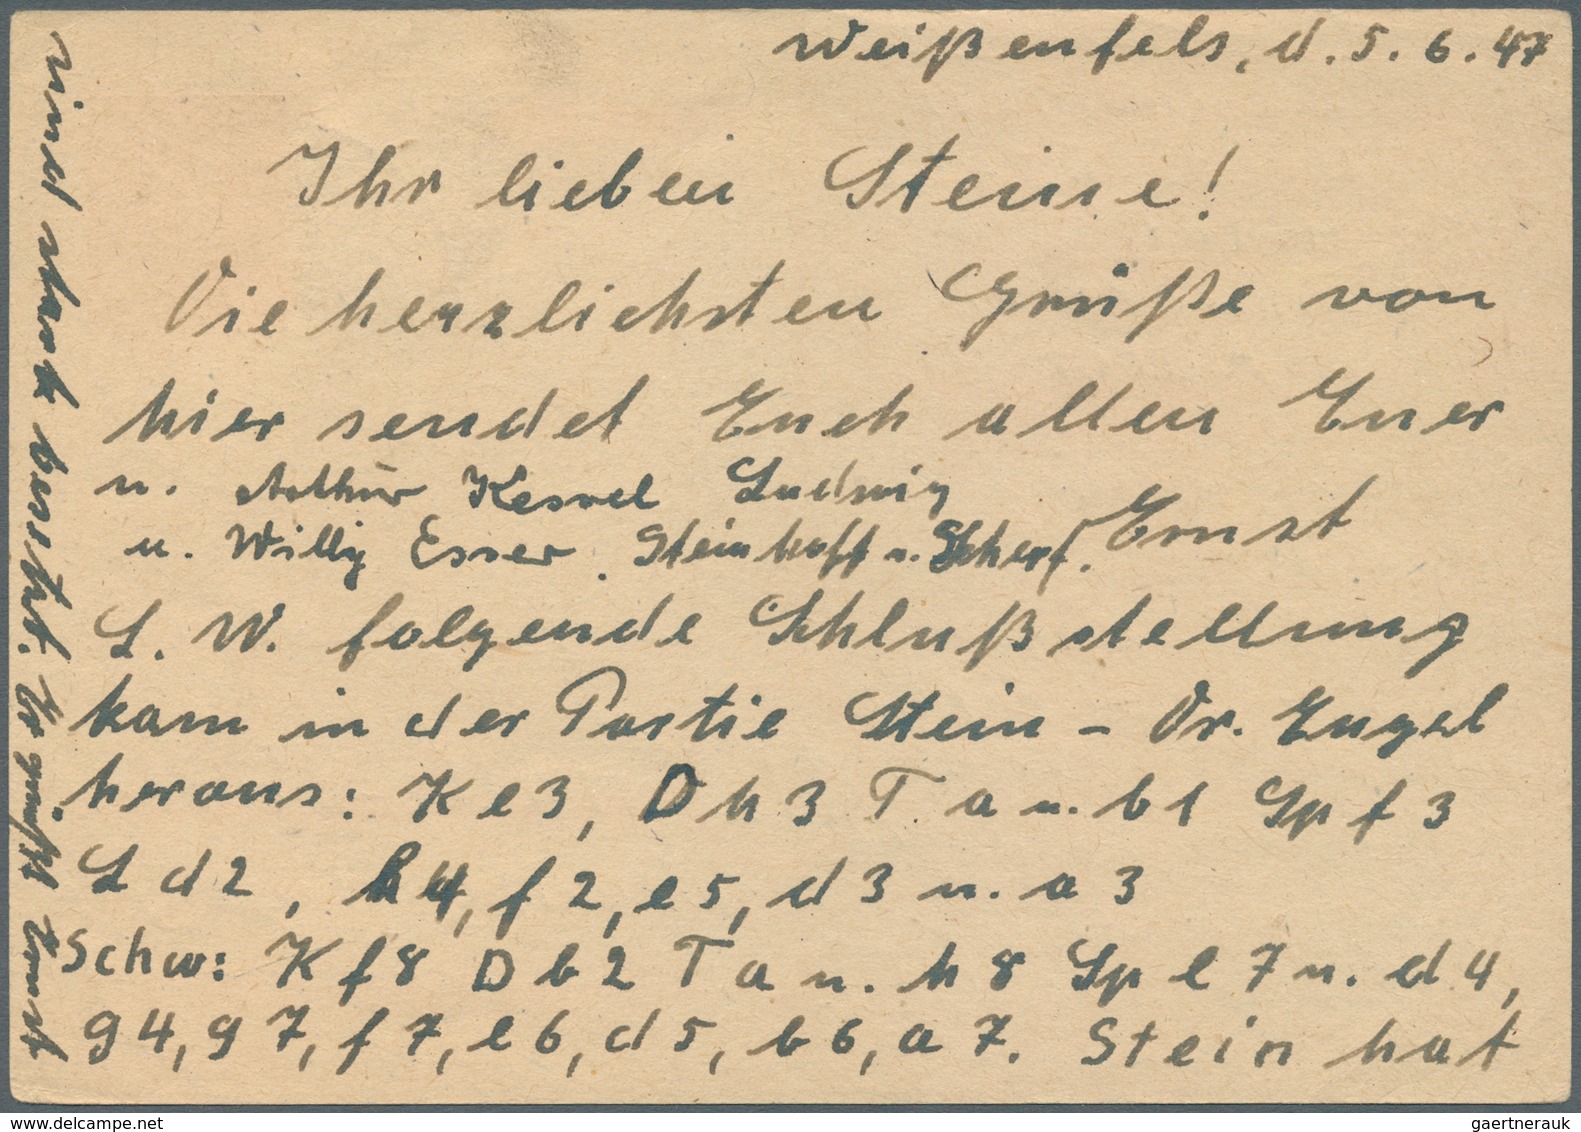 Weißenfels, d. 5. 6. 47
Ihr lieben Steine!
Die herzlichsten Grüße von
hier sendet Euch allen Euer
u. Arthur Kessel Ludwig
u. Willy Esser. Steinhoff u. Scherf. Ernst
L. W. folgende Schlußstellung
kam in der Partie Stein - Dr. Engel
heraus: K e3, D h3 T a u. b1 Sp f3
L d2, h4, f2, e5, d3 u. a3
Schw: K f8 D b2 T a u. h8 Sp e7 u. d4,
g4, g7, f7, e6, d5, b6, a7. Stein hat
grüßt Ernst
gaertnerauk